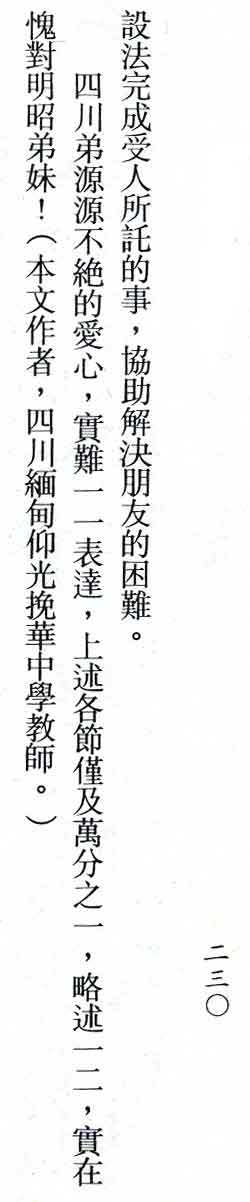 設法完成受人所託的事，協助解決朋友的困難。
四川弟源源不絕的愛心，實難一一表達，上述各節僅及萬分之一，略述一二，實在
愧對明昭弟妹！（本文作者，四川緬甸仰光挽華中學教師。）
二三〇